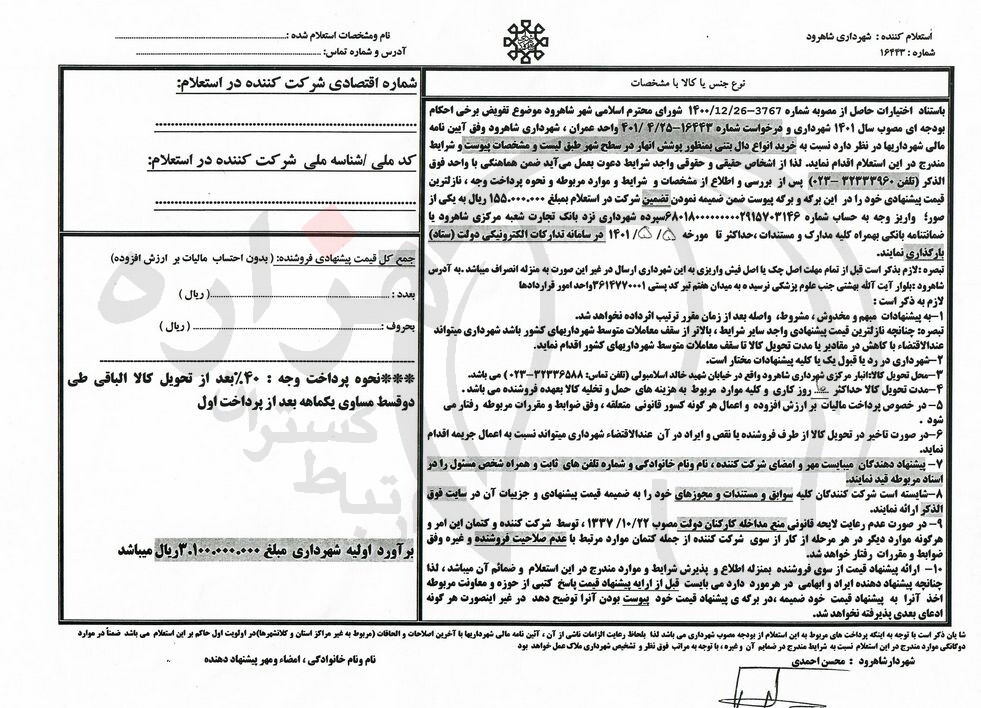 اُستعلام کننده : شهرداری شاهرود
شماره : ۱۶۴۴۳
نام ومشخصات استعلام شده :
آدرس و شماره تماس:
نوع جنس یا کالا با مشخصات
باستناد اختیارات حاصل از مصوبه شماره 3767-12/26/۱۴۰۰ شورای محترم اسلامی شهر شاهرود موضوع تفویض برخی احکام
بودجه ای مصوب سال ۱۴۰۱ شهرداری و درخواست شماره ۱۶۴۴۳-۴/۲۵ /۴۰۱ واحد عمران ، شهرداری شاهرود وفق آیین نامه
مالی شهرداریها در نظر دارد نسبت به خرید انواع دال بتنی بمنظور پوشش انهار در سطح شهر طبق لیست و مشخصات پیوست و شرایط
مندرج در این استعلام اقدام نماید. لذا از اشخاص حقیقی و حقوقی واجد شرایط دعوت بعمل می‌آید ضمن هماهنگی با واحد فوق
الذکر (تلفن ۳۲۳۳۳۹۶۰ -۰۲۳) پس از بررسی و اطلاع از مشخصات و شرایط و موارد مربوطه و نحوه پرداخت وجه ، نازلترین
قیمت پیشنهادی خود را در این برگه و برگه پیوست ضمن ضمیمه نمودن تضمین شرکت در استعلام بمبلغ ۱۵۵.۰۰۰.۰۰۰ ریال به یکی از
صور؛ واریز وجه به حساب شماره ۶۸۰۱۸۰۰۰۰۰۰۰۲۹۱۵۷۰۳۱۴۶سپرده شهرداری نزد بانک تجارت شعبه مرکزی شاهرود یا
ضمانتنامه بانکی بهمراه کلیه مدارک و مستندات ،حداکثر تا مورخه / /۱۴۰۱ در سامانه تدارکات الکترونیکی دولت (ستاد)
بارگذاری نمایند.
تبصره :لازم بذکر است قبل از تمام مهلت اصل چک یا اصل فیش واریزی به این شهرداری ارسال در غیر این صورت به منزله انصراف میباشد .به آدرس
شاهرود :بلوار آیت آلله بهشتی جنب علوم پزشکی نرسیده به میدان هفتم تیر کد پستی ۳۶۱۴۷۷۰۰۰۱واحد امور قراردادها
لازم به ذکر است :
۱-به پیشنهادات مبهم و مخدوش ، مشروط، واصله بعد از زمان مقرر ترتیب اثر داده نخواهد شد.
تبصره: چنانچه نازلترین قیمت پیشنهادی واجد سایر شرایط ، بالاتر از سقف معاملات متوسط شهرداریهای کشور باشد شهرداری میتواند
عندالاقتضاء با کاهش در مقادیر یا مدت تحویل کالا تا سقف معاملات متوسط شهرداریهای کشور اقدام نماید.
۲-شهرداری در رد یا قبول یک یا کلیه پیشنهادات مختار است.
۳-محل تحویل کالا:انبار مرکزی شهرداری شاهرود واقع در خیابان شهید خالد اسلامبولی (تلفن تماس: ۳۲۳۳۶۵۸۸-۰۲۳) می باشد.
۴-مدت تحویل کالا حداکثر روز کاری و کلیه موارد مربوط به هزینه های حمل و تخلیه کالا بعهده فروشنده می باشد .
۵- در خصوص پرداخت مالیات بر ارزش افزوده و اعمال هر گونه کسور قانونی متعلقه ، وفق ضوابط و مقررات مربوطه رفتار می
شود .
۶-در صورت تاخیر در تحویل کالا از طرف فروشنده یا نقص و ایراد در آن عندالاقتضاء شهرداری میتواند نسبت به اعمال جریمه اقدام
نماید.
۷- پیشنهاد دهندگان میبایست مهر و امضای شرکت کننده ، نام ونام خانوادگی و شماره تلفن های ثابت و همراه شخص مسئول را در
اسناد مربوطه قید نمایند.
۸-شایسته است شرکت کنندگان کلیه سوابق و مستندات و مجوزهای خود را به ضمیمه قیمت پیشنهادی و جزییات آن در سایت فوق
الذکر ارائه نمایند.
۹- در صورت عدم رعایت لایحه قانونی منع مداخله کارکنان دولت مصوب ۱۰/۲۲/ ۱۳۳۷ ، توسط شرکت کننده و کتمان این امر و
هرگونه موارد دیگر در هر مرحله از کار از سوی شرکت کننده از جمله کتمان موارد مرتبط با عدم صلاحیت فروشنده و غیره وفق
ضوابط و مقررات رفتار خواهد شد.
۱۰- ارائه پیشنهاد قیمت از سوی فروشنده بمنزله اطلاع و پذیرش شرایط و موارد مندرج در این استعلام و ضمائم آن میباشد ، لذا
چنانچه پیشنهاد دهنده ایراد و ابهامی در هرمورد دارد می بایست قبل از ارایه پیشنهاد قیمت پاسخ کتبی از حوزه و معاونت مربوطه
اخذ آنرا به پیشنهاد قیمت خود ضمیمه ،در برگه ی پیشنهاد قیمت خود پیوست بودن آنرا توضیح دهد در غیر اینصورت هر گونه
ادعای بعدی پذیرفته نخواهد شد.
شماره اقتصادی شرکت کننده در استعلام:
کد ملی /شناسه ملی شرکت کننده در استعلام:
جمع کل قیمت پیشنهادی فروشنده: ( بدون احتساب مالیات بر ارزش افزوده)
بعدد : ( ریال )
بحروف: ( ریال )
***نحوه پرداخت وجه : ۴۰٪بعد از تحویل کالا الباقی طی
دوقسط مساوی یکماهه بعد از پرداخت اول
برآورد اولیه شهرداری مبلغ ۳.۱۰۰.۰۰۰.۰۰۰ریال میباشد
شا یان ذکر است با توجه به اینکه پرداخت های مربوط به این استعلام از بودجه مصوب شهرداری می باشد لذا بلحاظ رعایت الزامات ناشی از آن ، آئین نامه مالی شهرداریها با آخرین اصلاحات و الحاقات (مربوط به غیر مراکز استان و کلانشهرها)در اولویت اول حاکم بر این استعلام می باشد ضمناً در موارد
دوگانگی موارد مندرج در این استعلام نسبت به شرایط مندرج در ضمایم آن و غیره ، با توجه به مراتب فوق نظر و تشخیص شهرداری ملاک عمل خواهد بود
شهردارشاهرود : محسن احمدی
نام ونام خانوادگی ، امضاء ومهر پیشنهاد دهنده
هزاره
گستران
رتباط